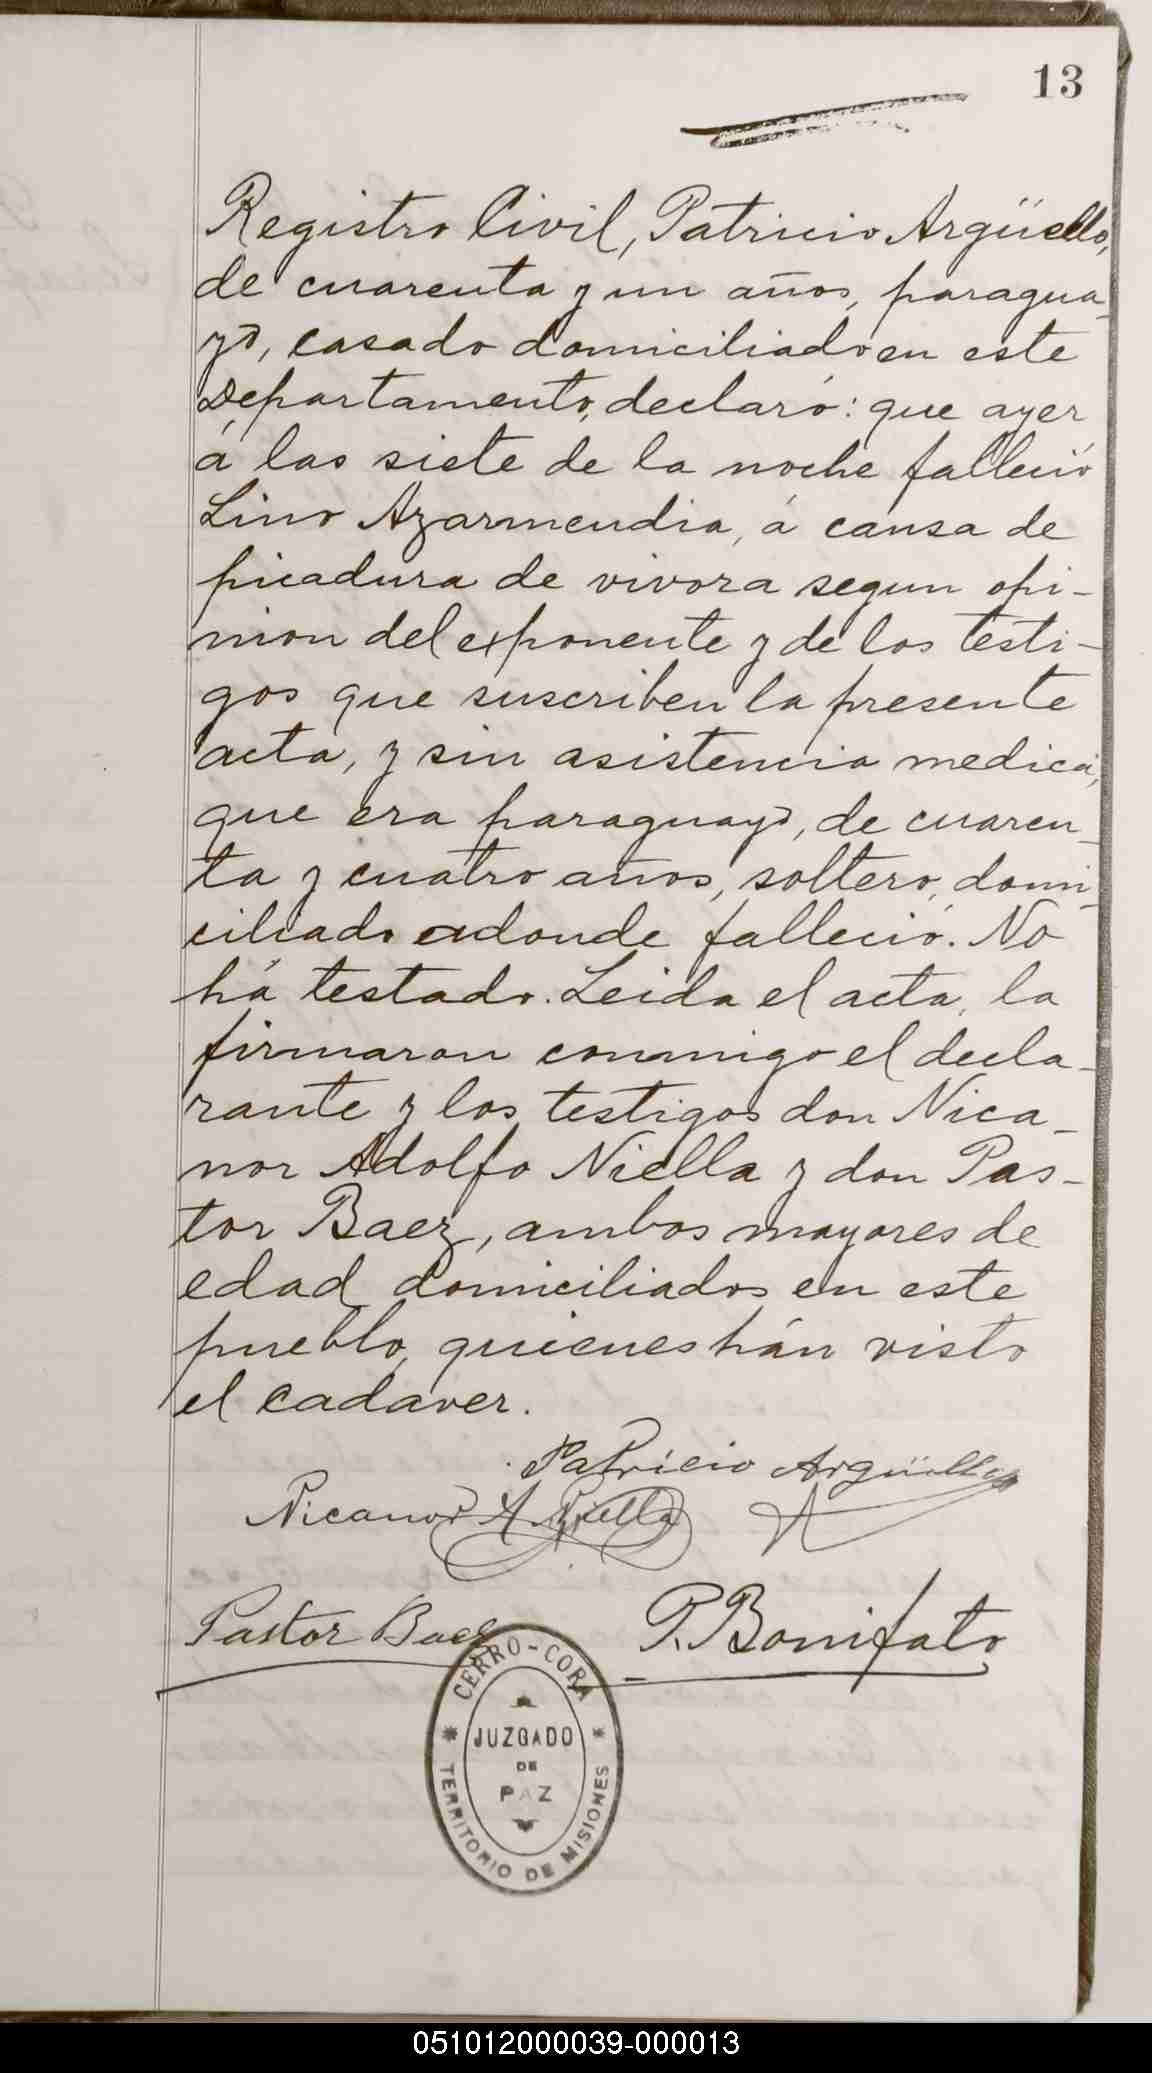 13
Registro Civil, Patricio Argüello,
de cuarenta y un años, paragua-
yo, casado domiciliado en este
Departamento, declaró: que ayer
á las siete de la noche falleció
Lino Azarmendia, á causa de
picadura de vivora segun opi-
nion del exponente y de los testi-
gos que suscriben la presente
acta, y sin asistencia medica,
que era paraguayo, de cuaren-
ta y cuatro años, soltero, domi-
ciliado adonde falleció. No
há testado. Leida el acta, la
firmaron conmigo el decla-
rante y los testigos don Nica-
nor Adolfo Niella y don Pas-
tor Baez, ambos mayores de
edad domiciliados en este
pueblo, quienes hán visto
el cadaver.
Patricio Argüello
Nicanor A. Niella
Pastor Baez
P. Bonifato
CERRO-CORA
JUZGADO
DE
PAZ
TERRITORIO DE MISIONES
051012000039-000013